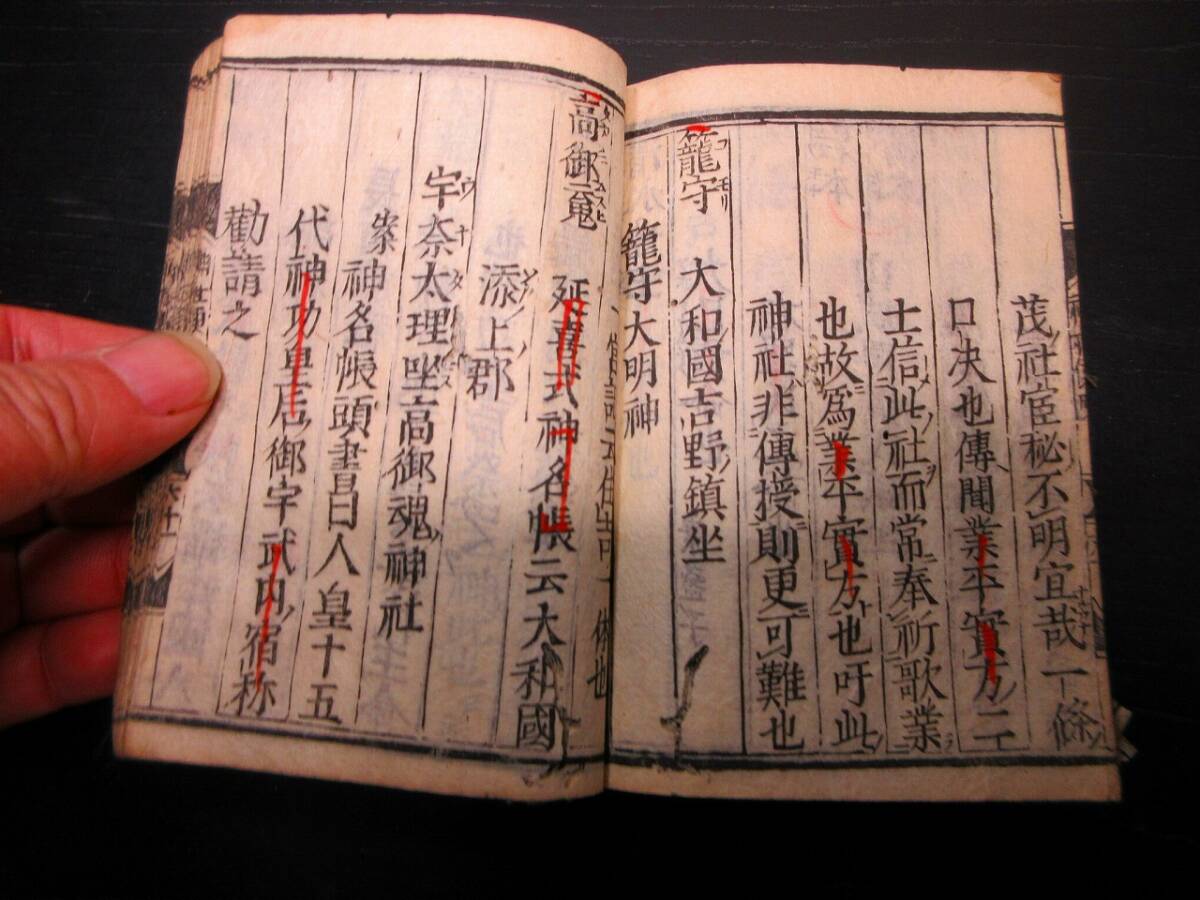 茂社官秘不明宜哉一條
口决也傳聞業平實方二
士信此社而常奉祈歌業
也故爲業平實方也吁此
神社非傳授則更可難也
籠守 大和國吉野鎮坐
籠守大明神
高御䰟 延喜式神名帳云大和國
添上郡
宇奈太理坐高御魂神社
峚神名帳頭書曰人皇十五
代神功皇后御宇武内宿称
勸請之